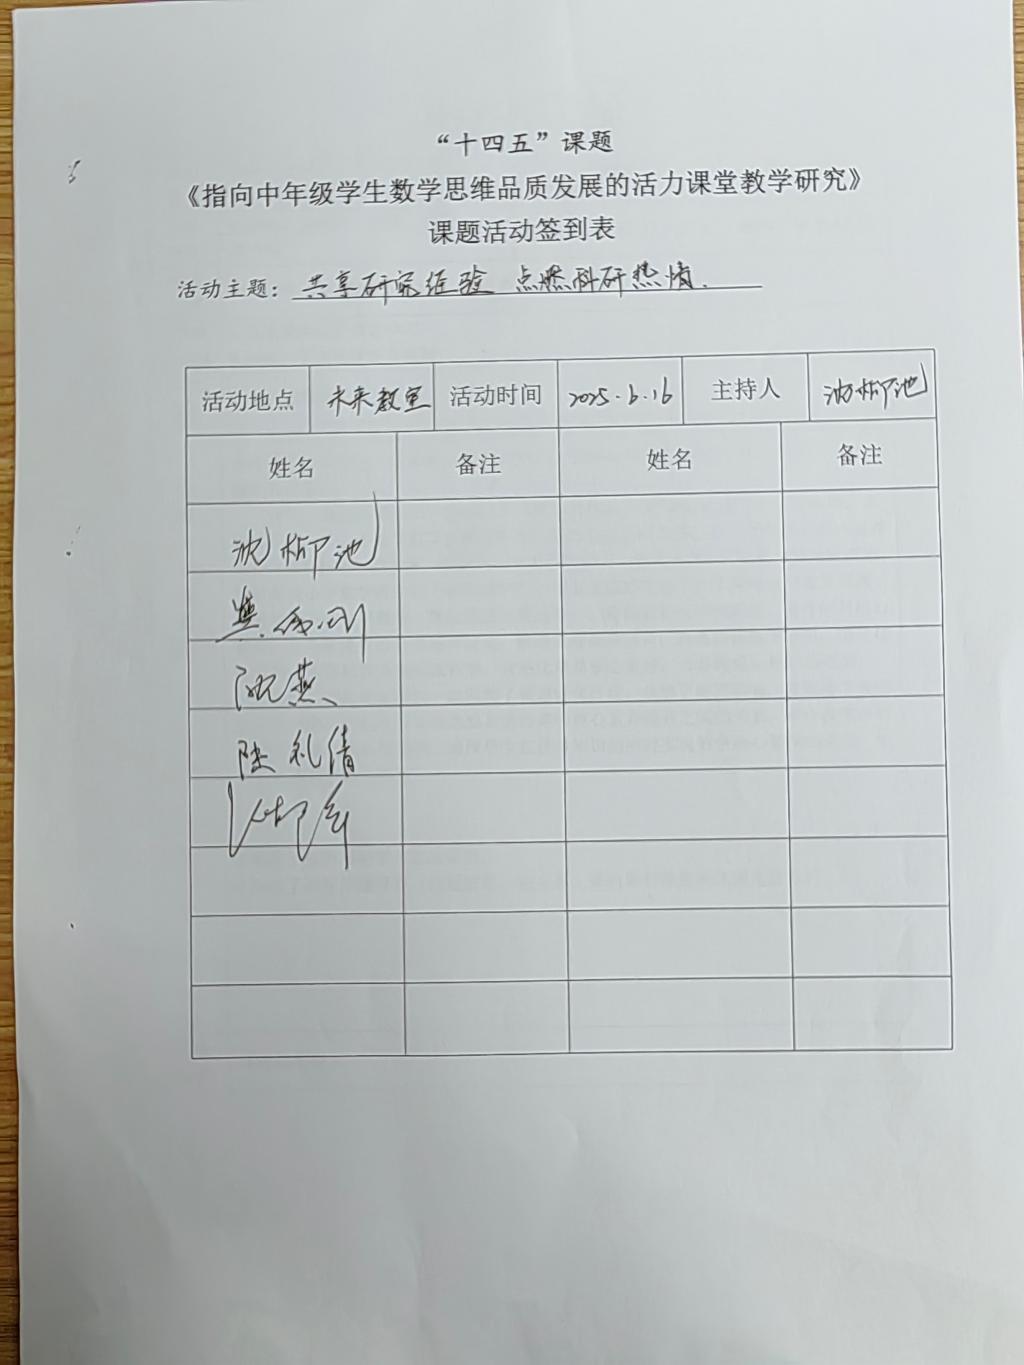 “十四五”课题
《指向中年级学生数学思维品质发展的活力课堂教学研究》
课题活动签到表
活动主题：共享研究经验 点燃科研热情.
活动地点 未来教室 活动时间 2025.6.16 主持人 沈柳池
姓名 备注 姓名 备注
沈柳池
陆礼倩